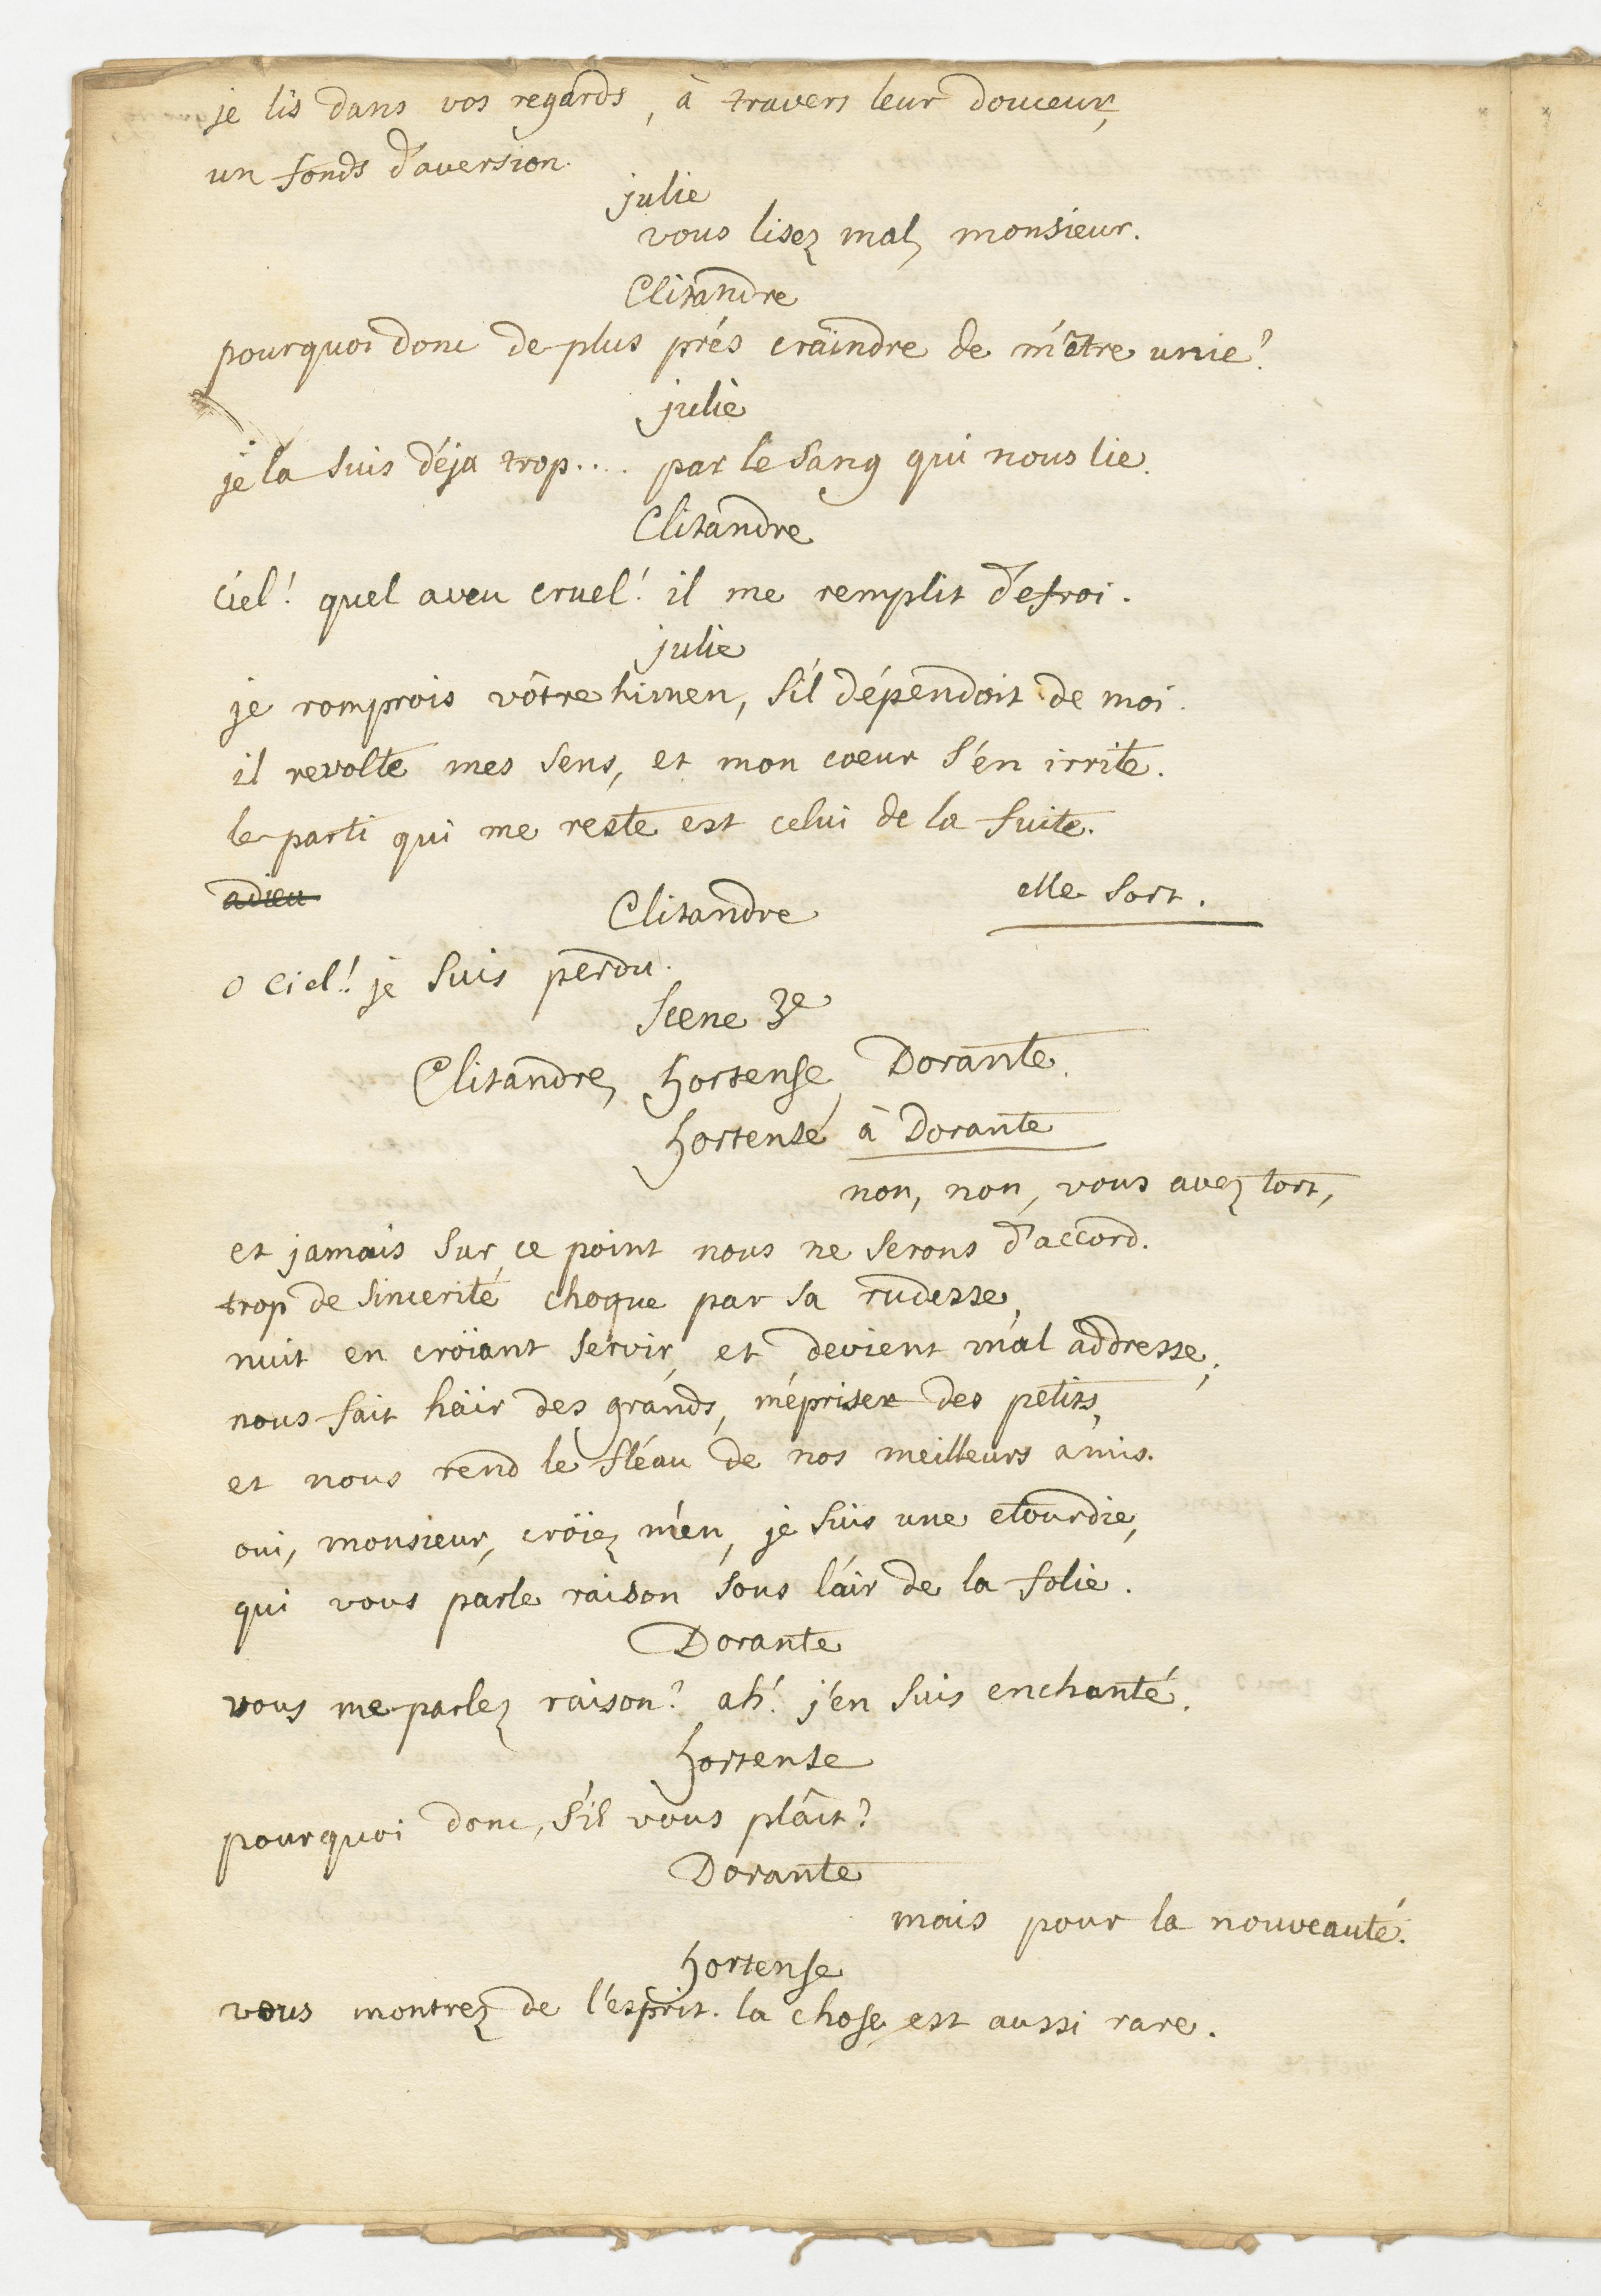 je lis dans vos regards, à travers leur douceur,
un fonds d'aversion.
julie
vous lisez mal, monsieur.
Clitandre
pourquoi donc de plus prés craindre de m'être unie?
julie
je la suis déja trop.... par le sang qui nous lie.
Clitandre
Ciel! quel aveu cruel! il me remplit d'efroi.
julie
je romprois vôtre himen, s'il dépendoit de moi.
il revolte mes sens, et mon coeur s'en irrite.
le parti qui me reste est celui de la fuite.
adieu
elle sort.
Clitandre
o Ciel! je suis perdu.
Scene 3e
Clitandre, hortense, Dorante.
hortense à Dorante
non, non, vous avez tort,
et jamais sur ce point nous ne serons d'accord.
trop de sincerité choque par sa rudesse,
nuit en croïant servir, et devient mal addresse;
nous fait häir des grands, mépriser des petits,
et nous rend le fléau de nos meilleurs amis.
oui, monsieur, croïez m'en, je suis une etourdie,
qui vous parle raison sous l'air de la folie.
Dorante
vous me parlez raison? ah! j'en suis enchanté.
hortense
pourquoi donc, s'il vous plâit?
Dorante
mais pour la nouveauté.
hortense
vous montrez de l'esprit. la chose est aussi rare.